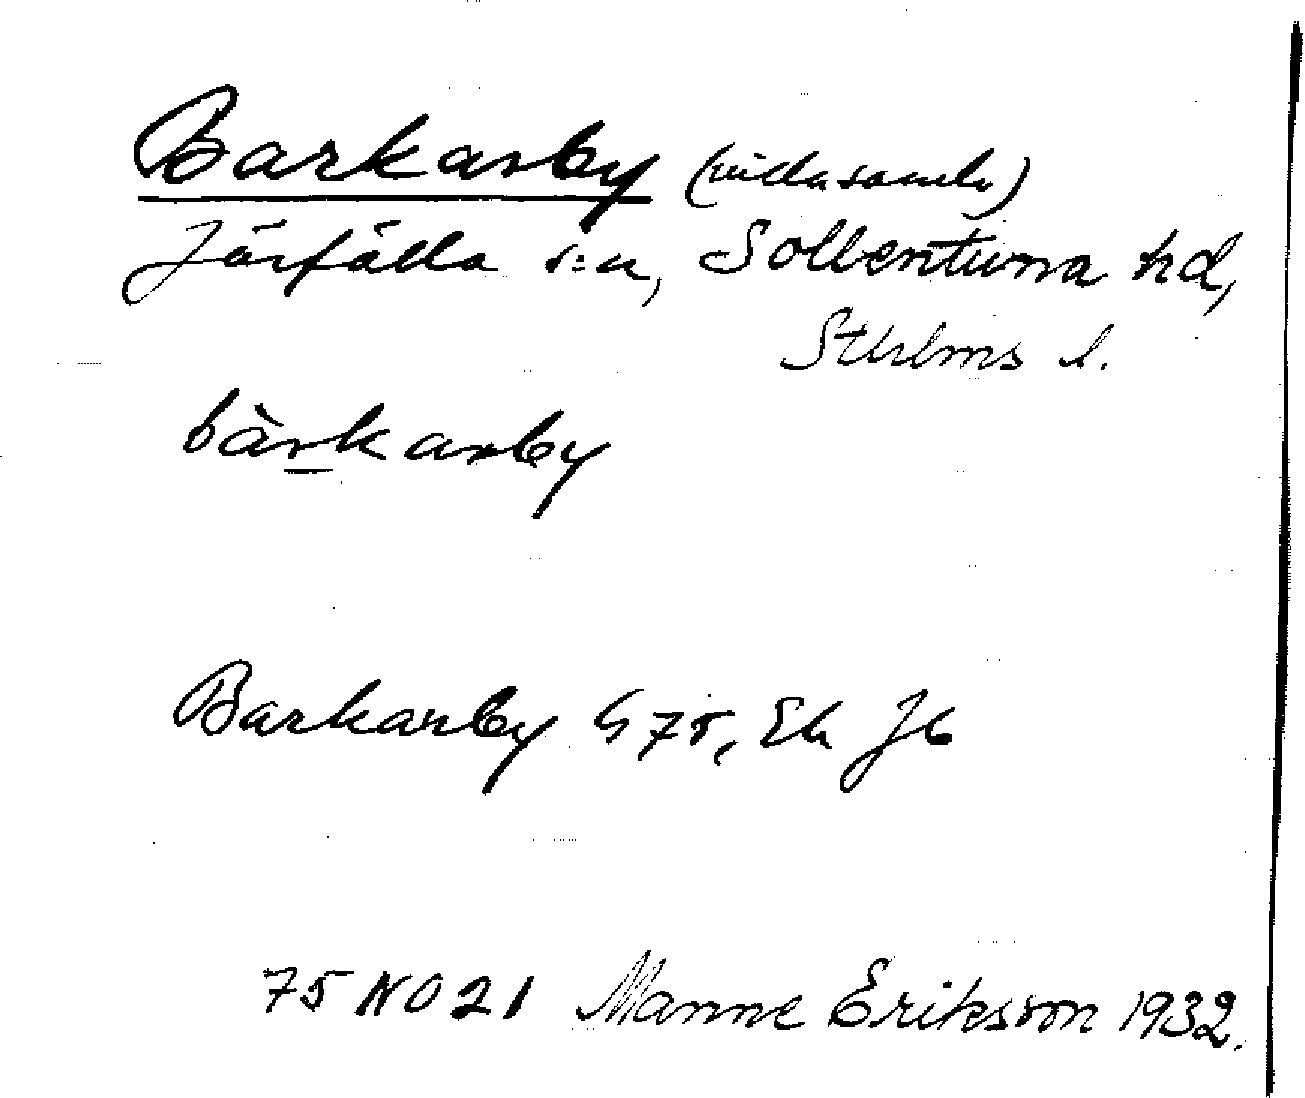 Barkarby (villasamh.)
Järfälla s:n, Sollentuna hd,
Sthlms l.
bàrkarby
Barkarby G 75, Ek Jb
75 NO 21 Manne Eriksson 1932.